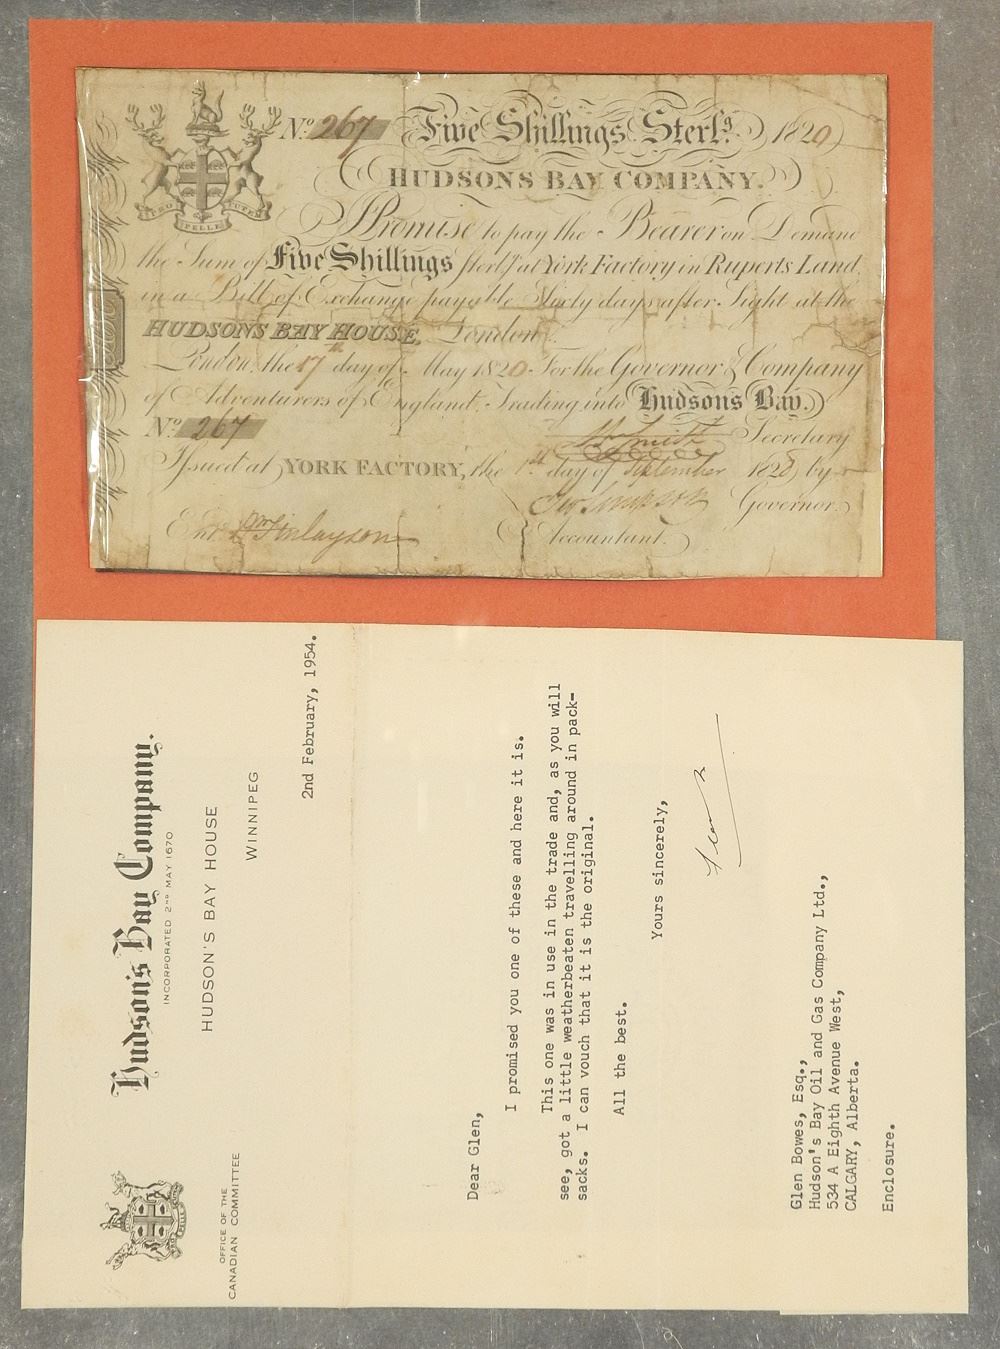 Nº 267 Five Shillings Sterlg. 1820
HUDSONS BAY COMPANY.
PRO PELLE CUTEM
I Promise to pay the Bearer on Demand
the Sum of Five Shillings Sterlg. at York Factory in Ruperts Land
in a Bill of Exchange payable Sixty days after Sight at the
HUDSONS BAY HOUSE, London.
London, the 17th day of May 1820. For the Governor & Company
of Adventurers of England, Trading into Hudsons Bay.
Nº 267
Wm Smith Secretary
Issued at YORK FACTORY, the 1st day of September 182 by
Geo Simpson Governor.
Entd. Finlayson Accountant.
Hudson's Bay Company.
INCORPORATED 2ND MAY 1670
HUDSON'S BAY HOUSE
WINNIPEG
OFFICE OF THE
CANADIAN COMMITTEE
2nd February, 1954.
Dear Glen,
I promised you one of these and here it is.
This one was in use in the trade and, as you will
see, got a little weatherbeaten travelling around in pack-
sacks. I can vouch that it is the original.
All the best.
Yours sincerely,
Glen Bowes, Esq.,
Hudson's Bay Oil and Gas Company Ltd.,
534 A Eighth Avenue West,
CALGARY, Alberta.
Enclosure.